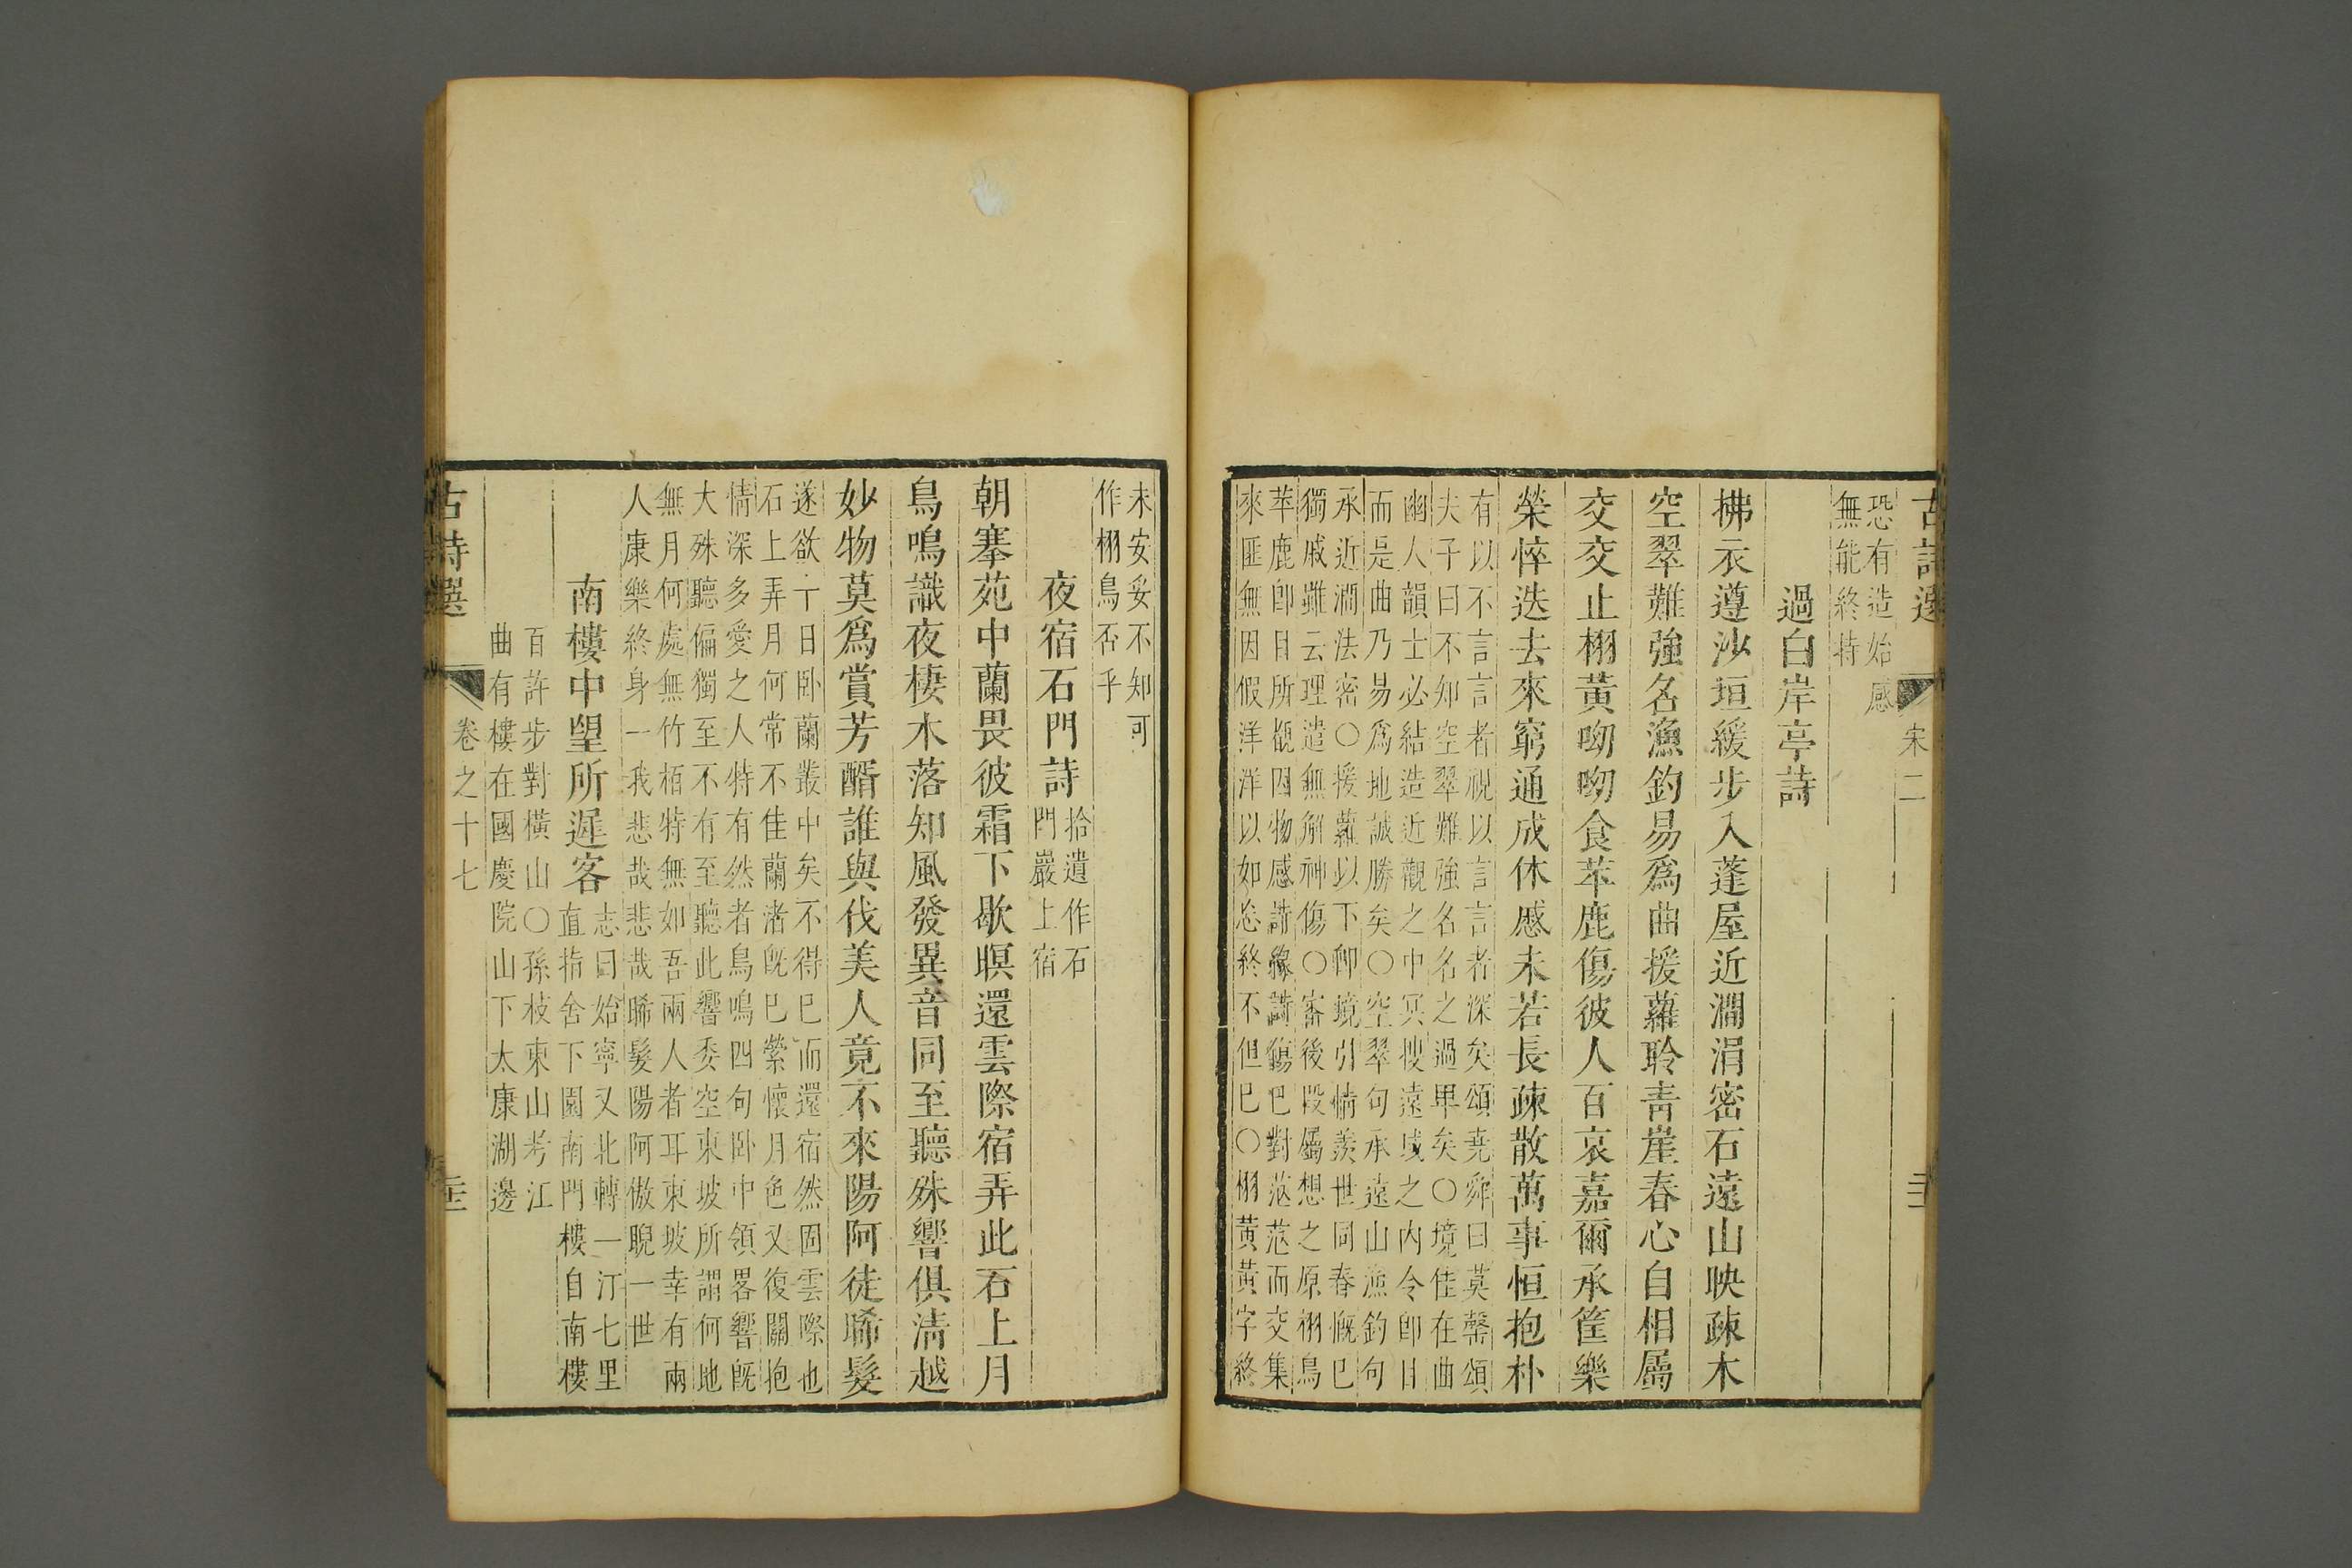 古詩選
宋二
恐有造始感
無能終特
過白岸亭詩
拂衣遵沙垣緩步入蓬屋近澗涓密石遠山映疎木
空翠難強名漁釣易爲曲援蘿聆青崖春心自相屬
交交止栩黃呦呦食苹鹿傷彼人百哀嘉爾承筐樂
榮悴迭去來窮通成休慼未若長疎散萬事恒抱朴
有以不言言者視以言言者深矣頌堯舜曰莫罄頌
夫子曰不知空翠難強名名之過畢矣○境佳在曲
幽人韻士必結造近觀之中冥搜遠或之內令卽目
而是曲乃易爲地誠勝矣○空翠句承遠山漁釣句
承近澗法密○援蘿以下卽境引情羨世同春慨已
獨戚雖云理遣無解神傷○審後段屬想之原栩鳥
苹鹿卽目所觀因物感詩緣詩傷已對茫茫而交集
來匪無因假洋洋以如忘終不但已○栩黃黃字終
未安妥不知可
作栩鳥否乎
夜宿石門詩
拾遺作石
門巖上宿
朝搴苑中蘭畏彼霜下歇暝還雲際宿弄此石上月
鳥鳴識夜棲木落知風發異音同至聽殊響俱清越
妙物莫爲賞芳醑誰與伐美人竟不來陽阿徒晞髮
遂欲丁日卧蘭叢中矣不得已而還宿然固雲際也
石上弄月何常不佳蘭渚旣已縈懷月色又復關抱
情深多愛之人特有然者鳥鳴四句卧中領畧響旣
大殊聽偏獨至不有至聽此響委空東坡所謂何地
無月何處無竹栢特無如吾兩人者耳東坡幸有兩
人康樂終身一我悲哉悲哉晞髮陽阿傲睨一世
南樓中望所遲客
志曰始寧又北轉一汀七里
直指舍下園南門樓自南樓
百許步對橫山○孫枝東山考江
曲有樓在國慶院山下太康湖邊
古詩選
卷之十七